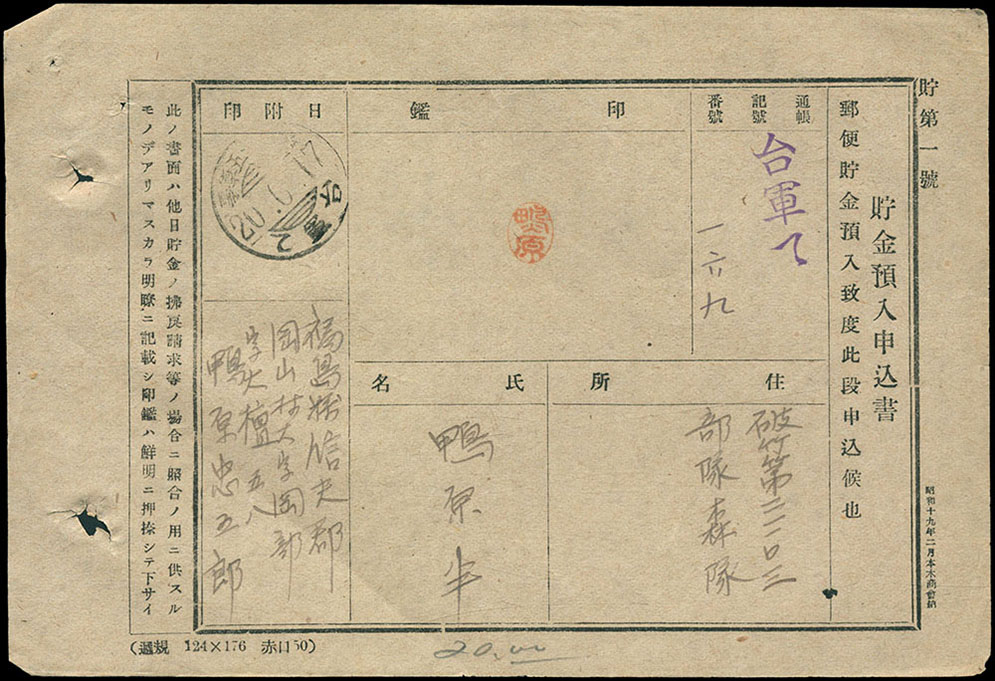 貯第一號
貯金預入申込書
郵便貯金預入致度此段申込候也
昭和十九年二月本木商會納
通帳
記號
番號
台軍て
一六九
印鑑
鴨原
日附印
20.6.17
住所
破竹第二二〇三
部隊森隊
氏名
鴨原
福島縣信夫郡
岡山村大字岡部
字大檀五八
鴨原忠五郎
此ノ書面ハ他日貯金ノ拂戾請求等ノ場合ニ照合ノ用ニ供スル
モノデアリマスカラ明瞭ニ記載シ印鑑ハ鮮明ニ押捺シテ下サイ
(規格 124×176 赤口50)
20.00